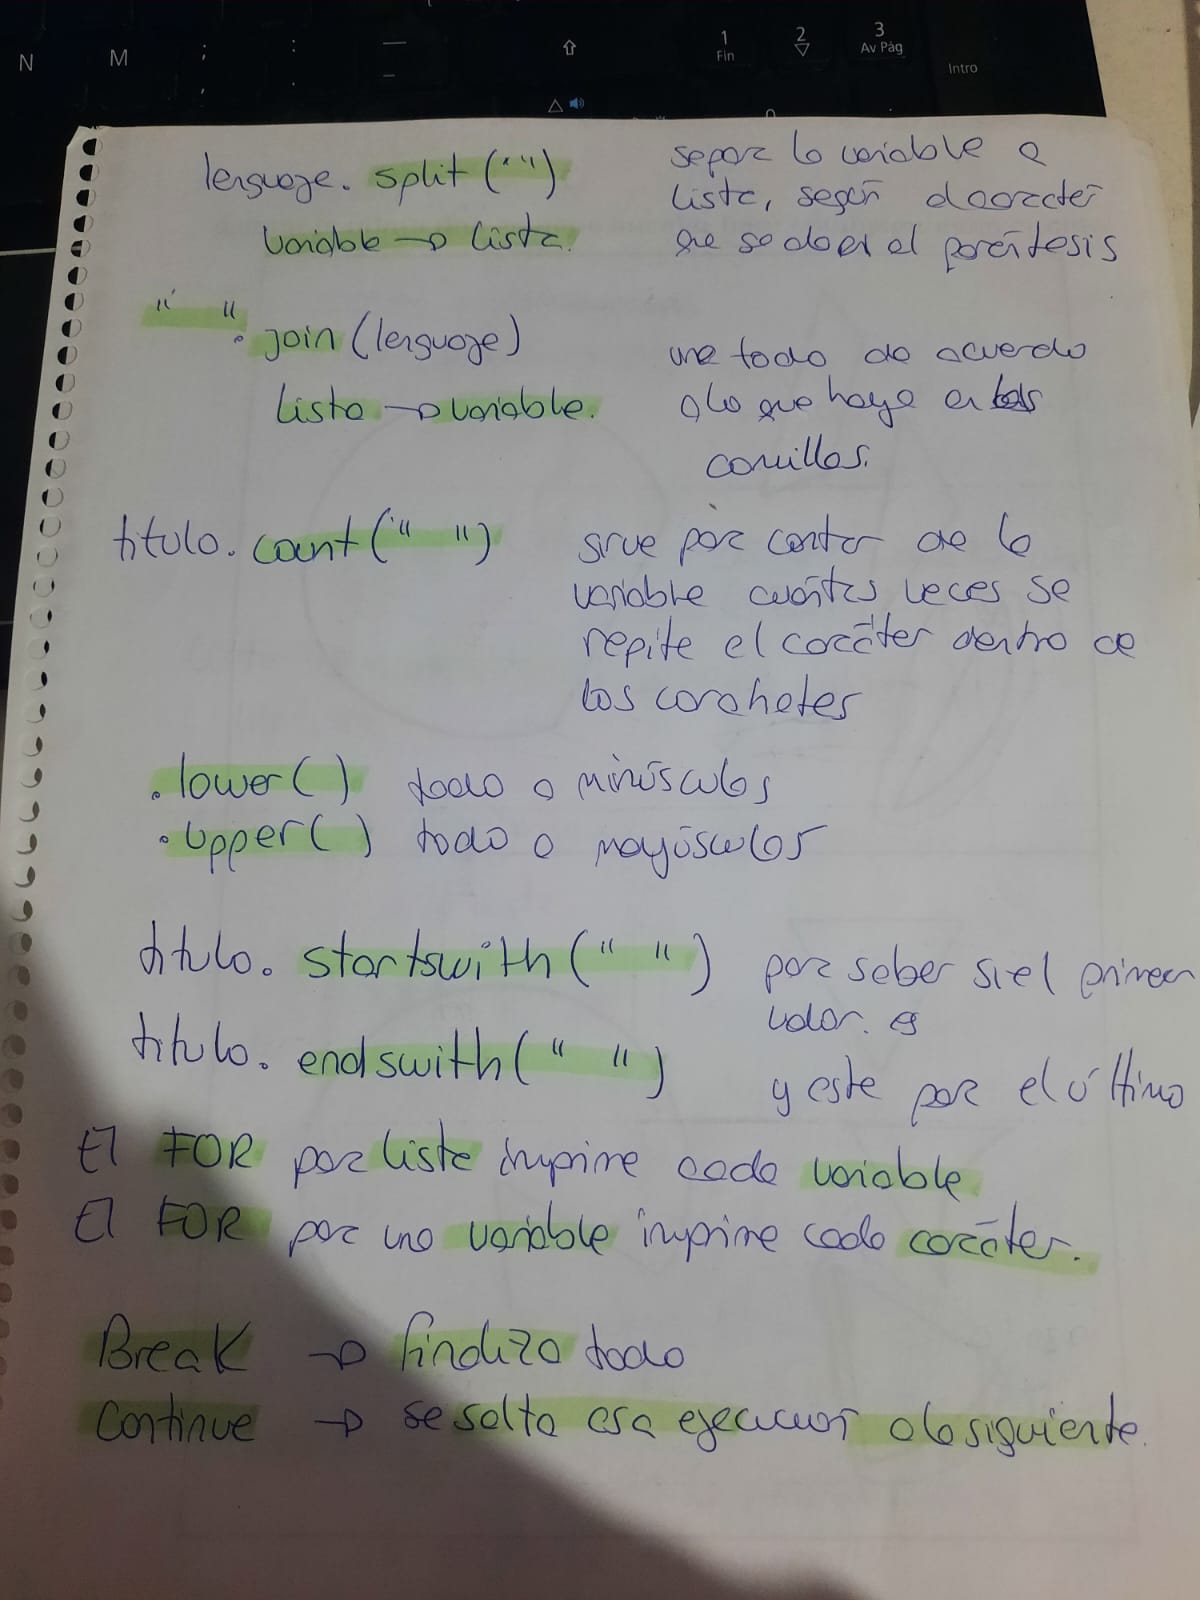 N M ; , : . — – ⇧ 1 Fin 2 ▽ 3 Av Pág Intro
lenguaje. split (" ")
variable → lista.
separa la variable a
lista, según el caracter
que se da en el paréntesis
" ". join (lenguaje)
lista → variable.
une todo de acuerdo
a lo que haya en las
comillas.
titulo. count (" ")
sirve para contar de la
variable cuántas veces se
repite el carácter dentro de
los corchetes
.lower( ) todo a minúsculas
.upper( ) todo a mayúsculas
titulo. startswith (" ")
para saber si el primer
valor. es
titulo. endswith (" ")
y este para el último
El FOR para lista imprime cada variable
El FOR para una variable imprime cada carácter.
Break → finaliza todo
Continue → se salta esa ejecución a la siguiente.